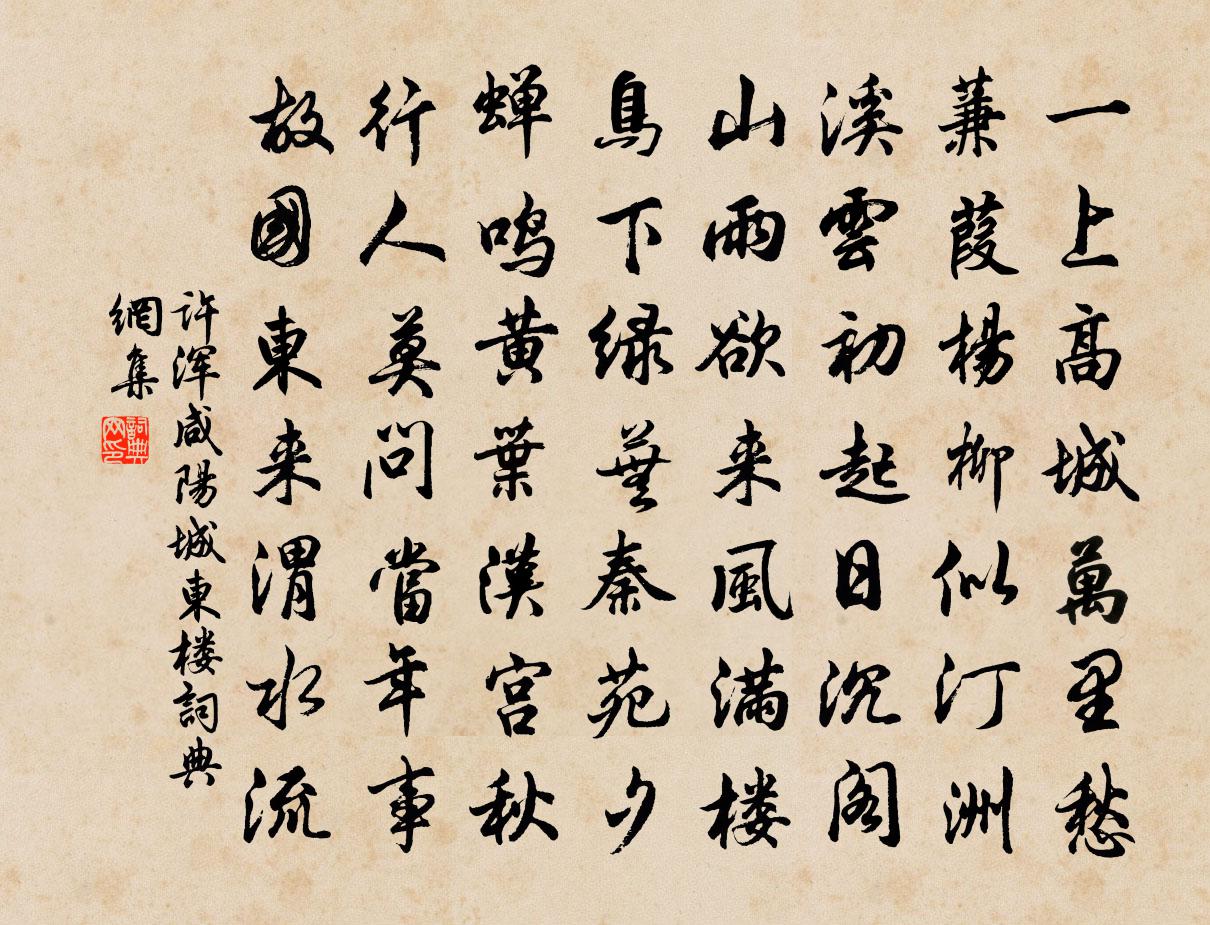 一上高城萬里愁
蒹葭楊柳似汀洲
溪雲初起日沉阁
山雨欲来風满楼
鳥下绿蕪秦苑夕
蝉鸣黄葉漢宫秋
行人莫问當年事
故國東来渭水流
许浑咸陽城東楼詞典
網集
詞典
网印